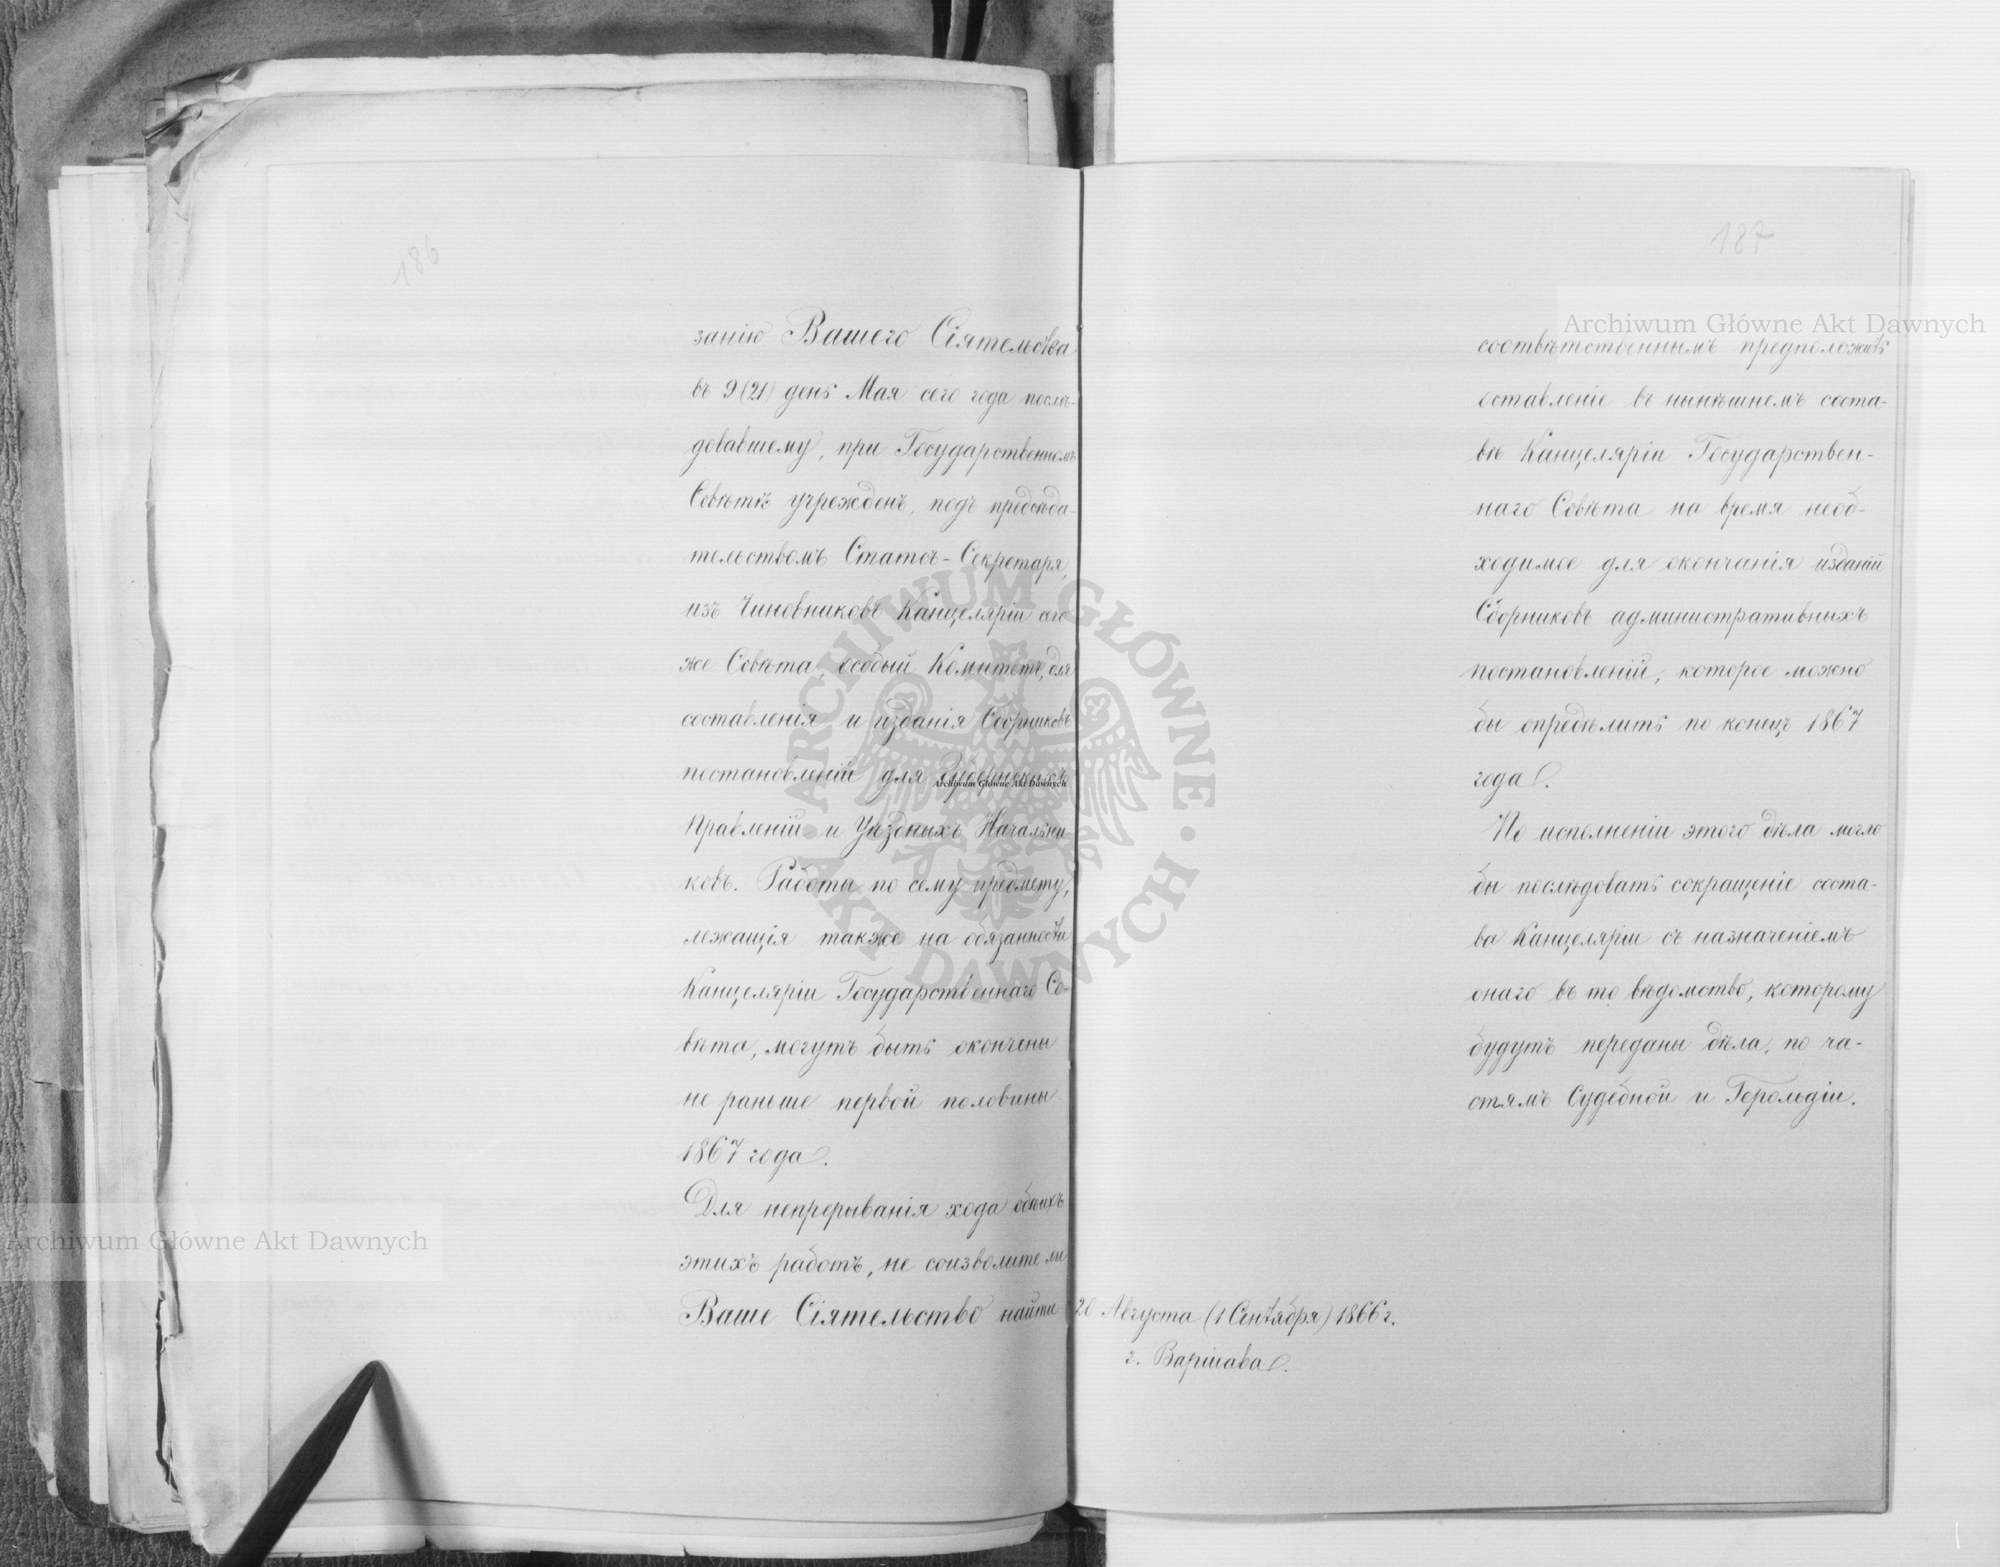 186
занію Вашего Сіятельства
въ 9 (21) день Мая сего года послѣ-
довавшему, при Государственномъ
Совѣтѣ учрежденъ, подъ предсѣда-
тельствомъ Статсъ-Секретаря,
изъ Чиновниковъ Канцеляріи сего
же Совѣта, особый Комитетъ, для
составленія и изданія Сборниковъ
постановленій для Губернскихъ
Правленій и Уѣздныхъ Начальни-
ковъ. Работы по сему предмету,
лежащія также на обязанности
Канцеляріи Государственнаго Со-
вѣта, могутъ быть окончены
не раньше первой половины
1867 года.
Для непрерыванія хода обѣихъ
этихъ работъ, не соизволите ли
Ваше Сіятельство найти
187
соотвѣтственнымъ предположить
оставленіе въ нынѣшнемъ соста-
вѣ Канцеляріи Государствен-
наго Совѣта на время необ-
ходимое для окончанія изданій
Сборниковъ административныхъ
постановленій, которое можно
бы опредѣлить по конецъ 1867
года.
По исполненіи этого дѣла могло
бы послѣдовать сокращеніе соста-
ва Канцеляріи съ назначеніемъ
онаго въ то вѣдомство, которому
будутъ переданы дѣла, по ча-
стямъ Судебной и Герольдіи.
20 Августа (1 Сентября) 1866 г.
г. Варшава.
Archiwum Główne Akt Dawnych
Archiwum Główne Akt Dawnych
Archiwum Główne Akt Dawnych
ARCHIWUM GŁÓWNE · AKT DAWNYCH ·